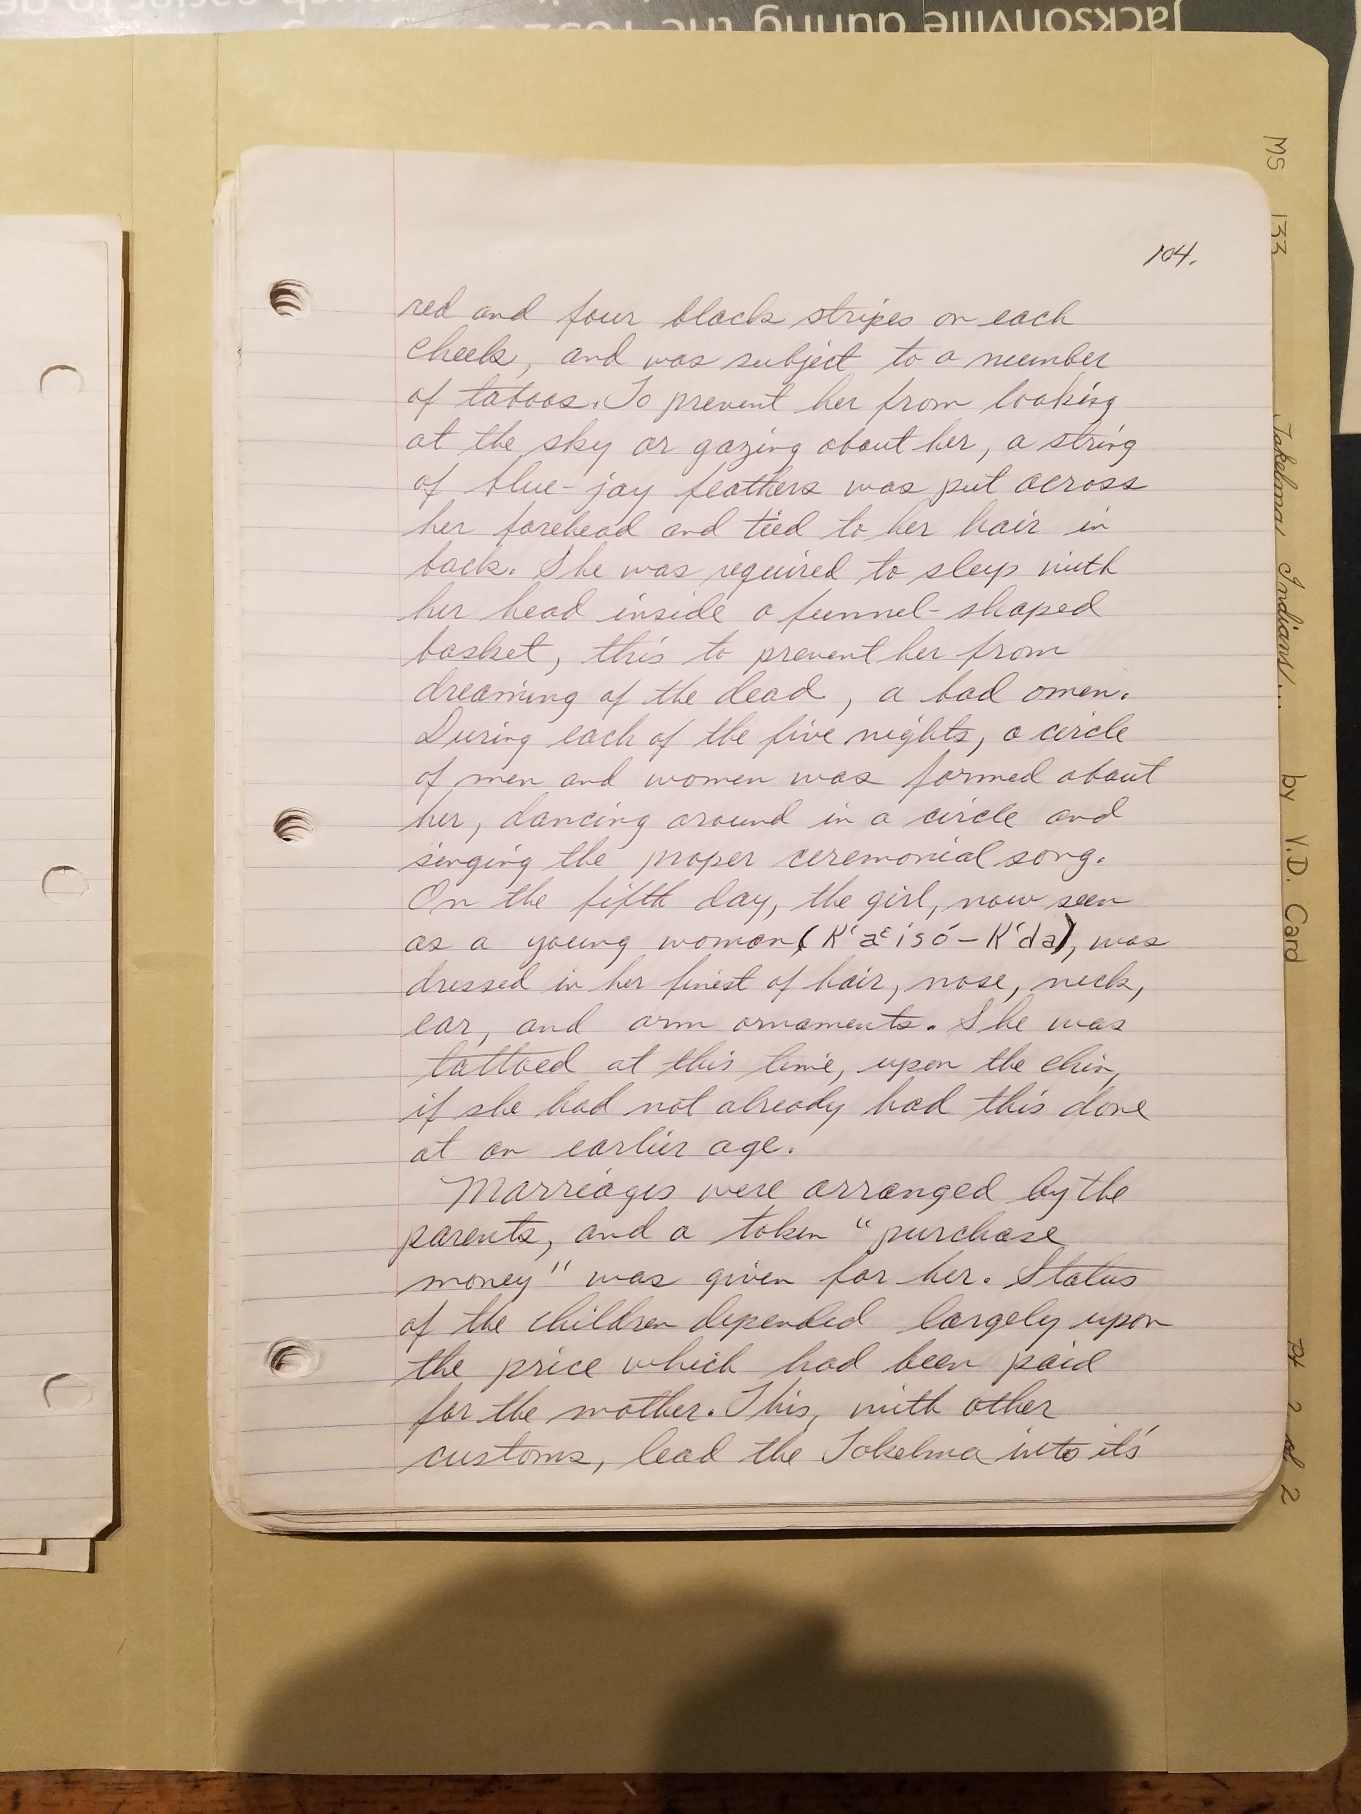 Jacksonville during the 1852
104.
red and four black stripes on each
cheek, and was subject to a number
of taboos. To prevent her from looking
at the sky or gazing about her, a string
of blue-jay feathers was put across
her forehead and tied to her hair in
back. She was required to sleep with
her head inside a funnel-shaped
basket, this to prevent her from
dreaming of the dead, a bad omen.
During each of the five nights, a circle
of men and women was formed about
her, dancing around in a circle and
singing the proper ceremonial song.
On the fifth day, the girl, now seen
as a young woman (K'aᵋisó-K'da), was
dressed in her finest of hair, nose, neck,
ear, and arm ornaments. She was
tattoed at this time, upon the chin,
if she had not already had this done
at an earlier age.
Marriages were arranged by the
parents, and a token "purchase
money" was given for her. Status
of the children depended largely upon
the price which had been paid
for the mother. This, with other
customs, lead the Takelma into it's
MS 133 Takelma Indians... by V.D. Card Pt 2 of 2